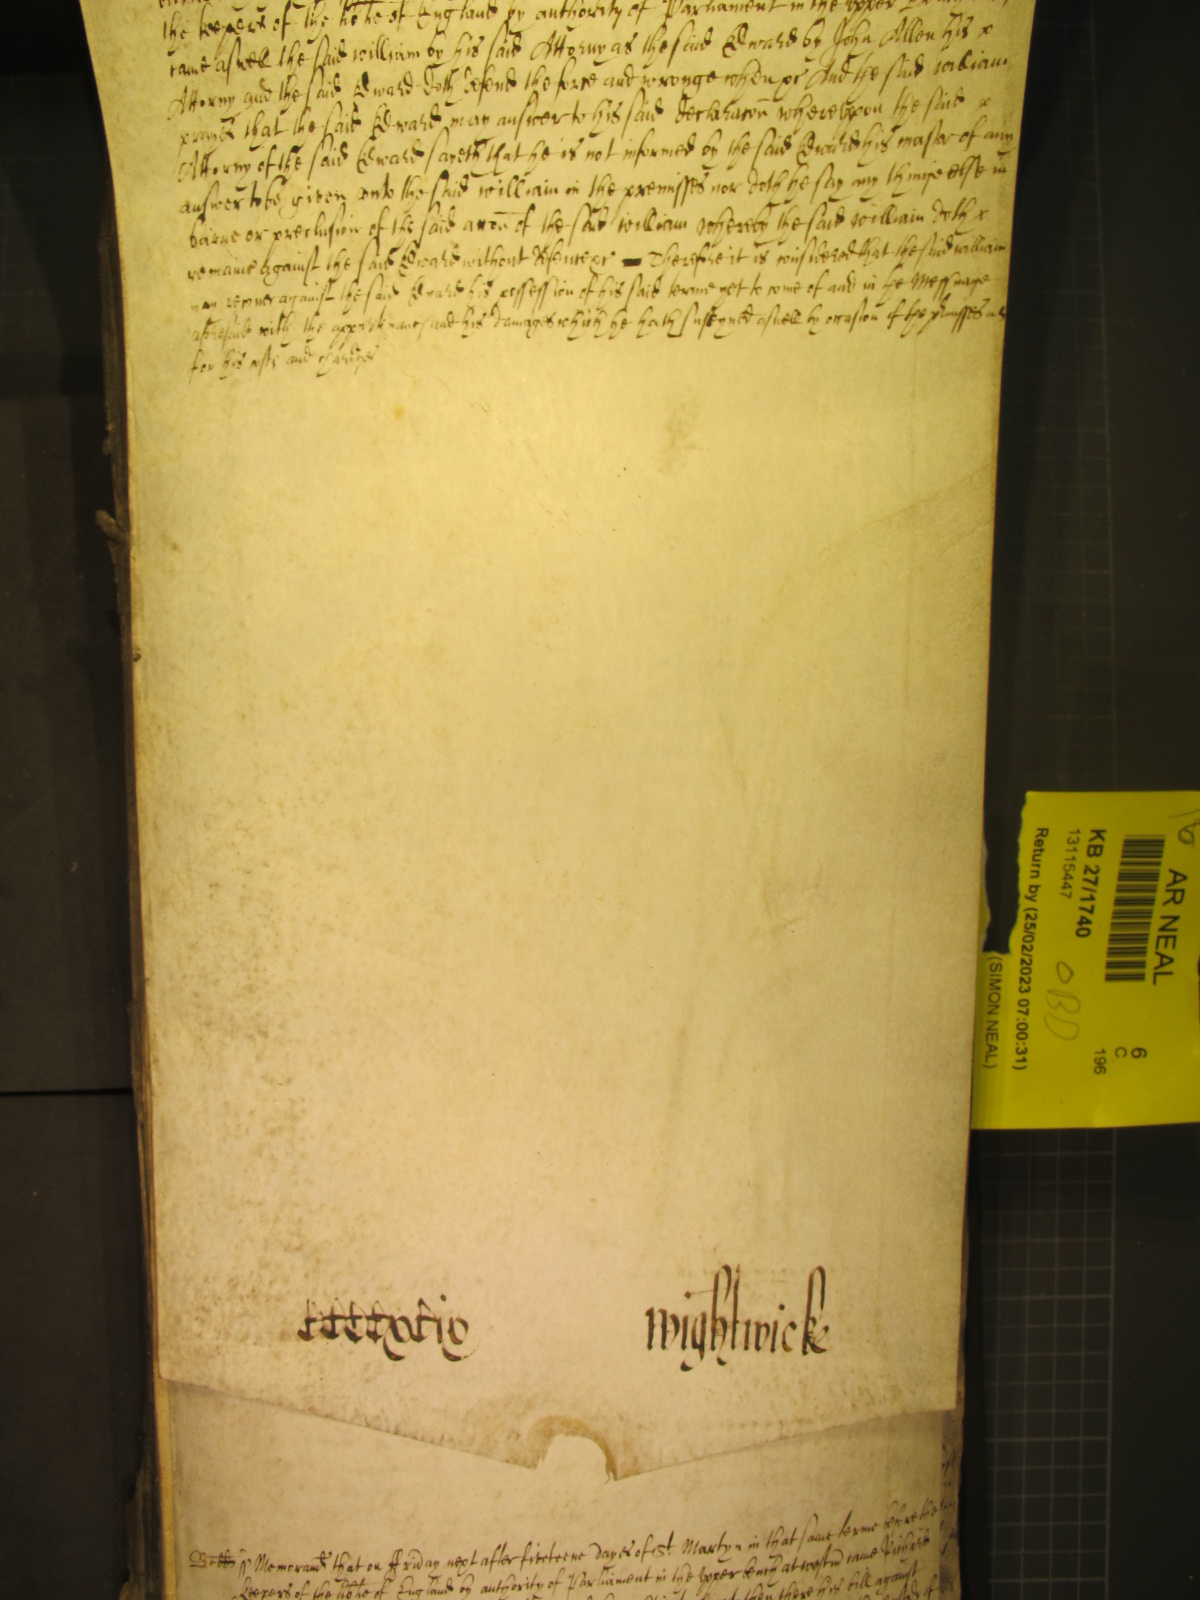 the keepers of the libtie of England by authority of Parliament in the vpper
came aswell the said william by his said Attorny as the said Edward by John Allen his x
Attorny and the said Edward doth defend the force and wronge when &c And the said william
prayes that the said Edward may answer to his said declaracon wherevpon the said x
Attorny of the said Edward sayeth that he is not informed by the said Edward his master of any
answer to be given vnto the said william in the premisses nor doth he say any thinge else in
barre or preclusion of the said accon of the said william whereby the said william doth x
remaine against the said Edward without defence &c Therefore it is considered that the said william
may recover against the said Edward his possession of his said terme yet to come of and in the Messuage
aforesaid with the appurtenances and his damages which he hath susteyned aswell by occasion of the premisses as
for his costs and charges
wightwick
Memorand that on Friday next after fifteene dayes of St Martyn in that same terme before the
keepers of the libtie of England by authority of Parliament in the vpper bench at westm came Richard
then there his bill against
AR NEAL
KB 27/1740
13115447
Return by (25/02/2023 07:00:31)
(SIMON NEAL)
6
C
196
OBD